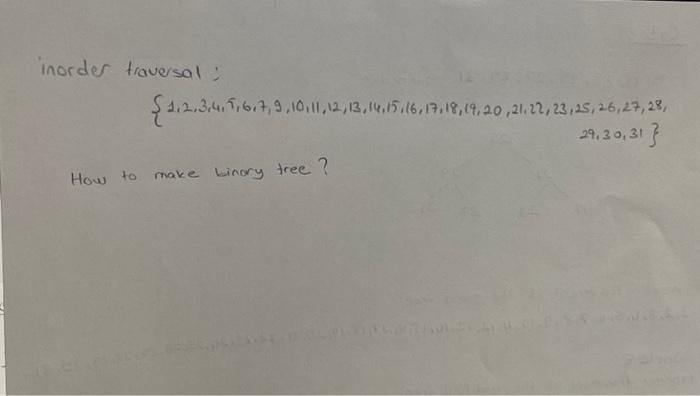 inorder traversal ;
{ 1,2,3,4,5,6,7,9,10,11,12,13,14,15,16,17,18,19,20,21,22,23,25,26,27,28,
29,30,31 }
How to make binary tree ?